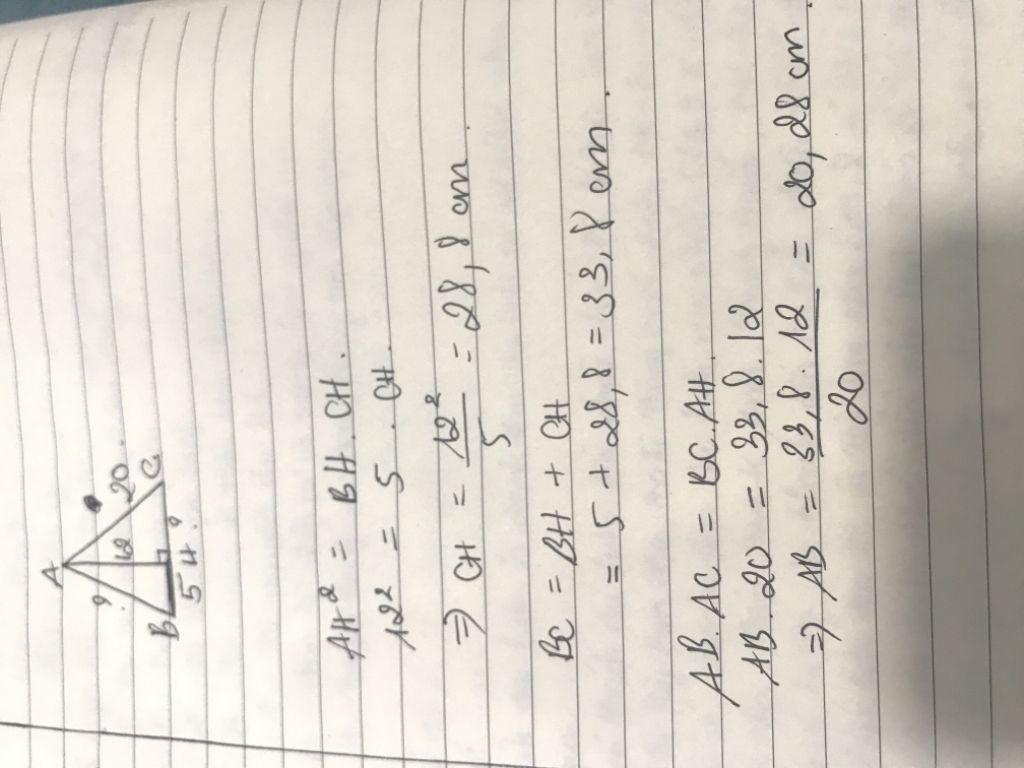 A
? 12 20
B 5 H ? C
AH² = BH . CH.
12² = 5 . CH.
=> CH = 12²/5 = 28,8 cm.
BC = BH + CH
= 5 + 28,8 = 33,8 cm.
AB. AC = BC. AH.
AB. 20 = 33,8. 12
=> AB = 33,8. 12/20 = 20,28 cm.